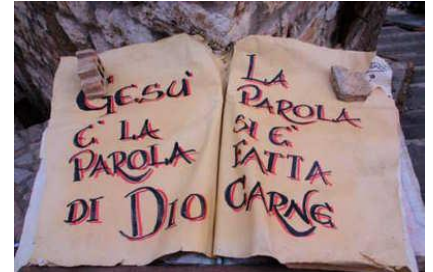 GESÙ
E' LA
PAROLA
DI DIO
LA
PAROLA
SI E'
FATTA
CARNE